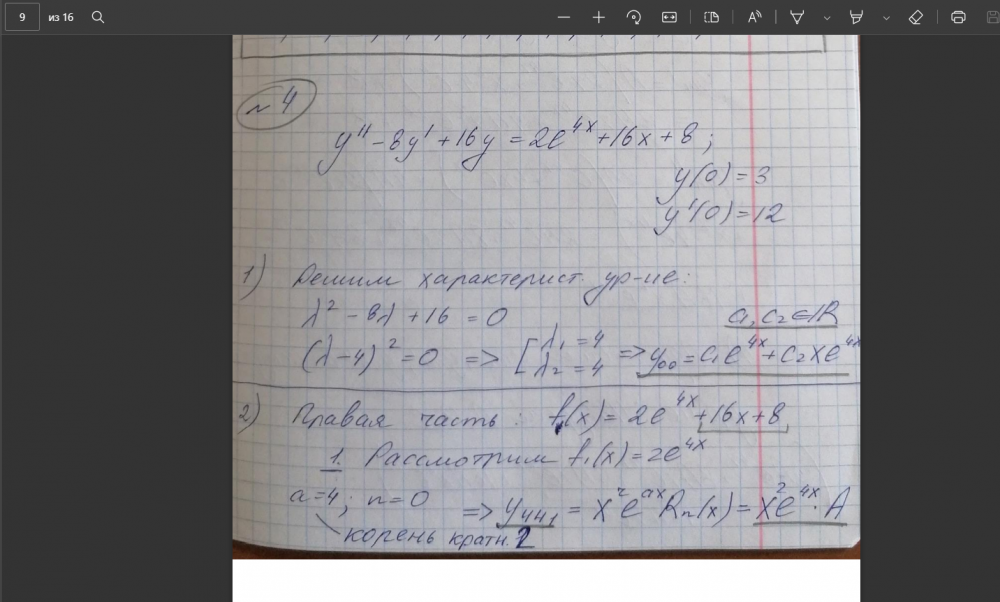 9 из 16
№ 4
y'' - 8y' + 16y = 2e^{4x} + 16x + 8 ;
y(0) = 3
y'(0) = 12
1) Решим характерист. ур-ие:
λ² - 8λ + 16 = 0
c₁, c₂ ∈ R
(λ - 4)² = 0 => [ λ₁ = 4 λ₂ = 4 => y₀₀ = c₁e^{4x} + c₂xe^{4x}
2) Правая часть : f(x) = 2e^{4x} + 16x + 8
1. Рассмотрим f₁(x) = 2e^{4x}
a = 4 ; n = 0 => yчн₁ = x^r e^{ax} Rₙ(x) = x² e^{4x} · A
корень кратн. 2